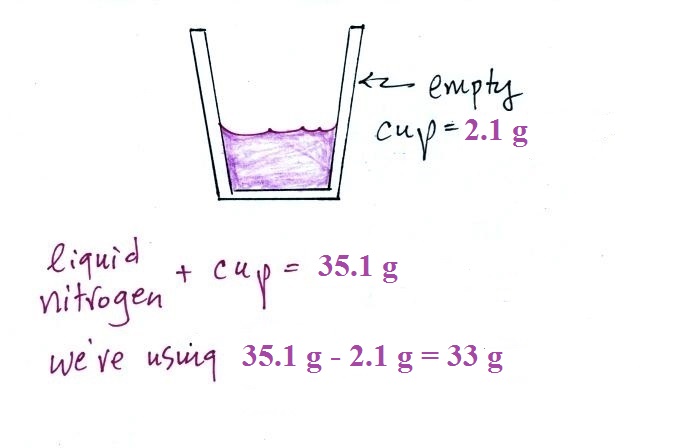 ← empty
cup = 2.1 g
liquid
nitrogen + cup = 35.1 g
we're using 35.1 g - 2.1 g = 33 g